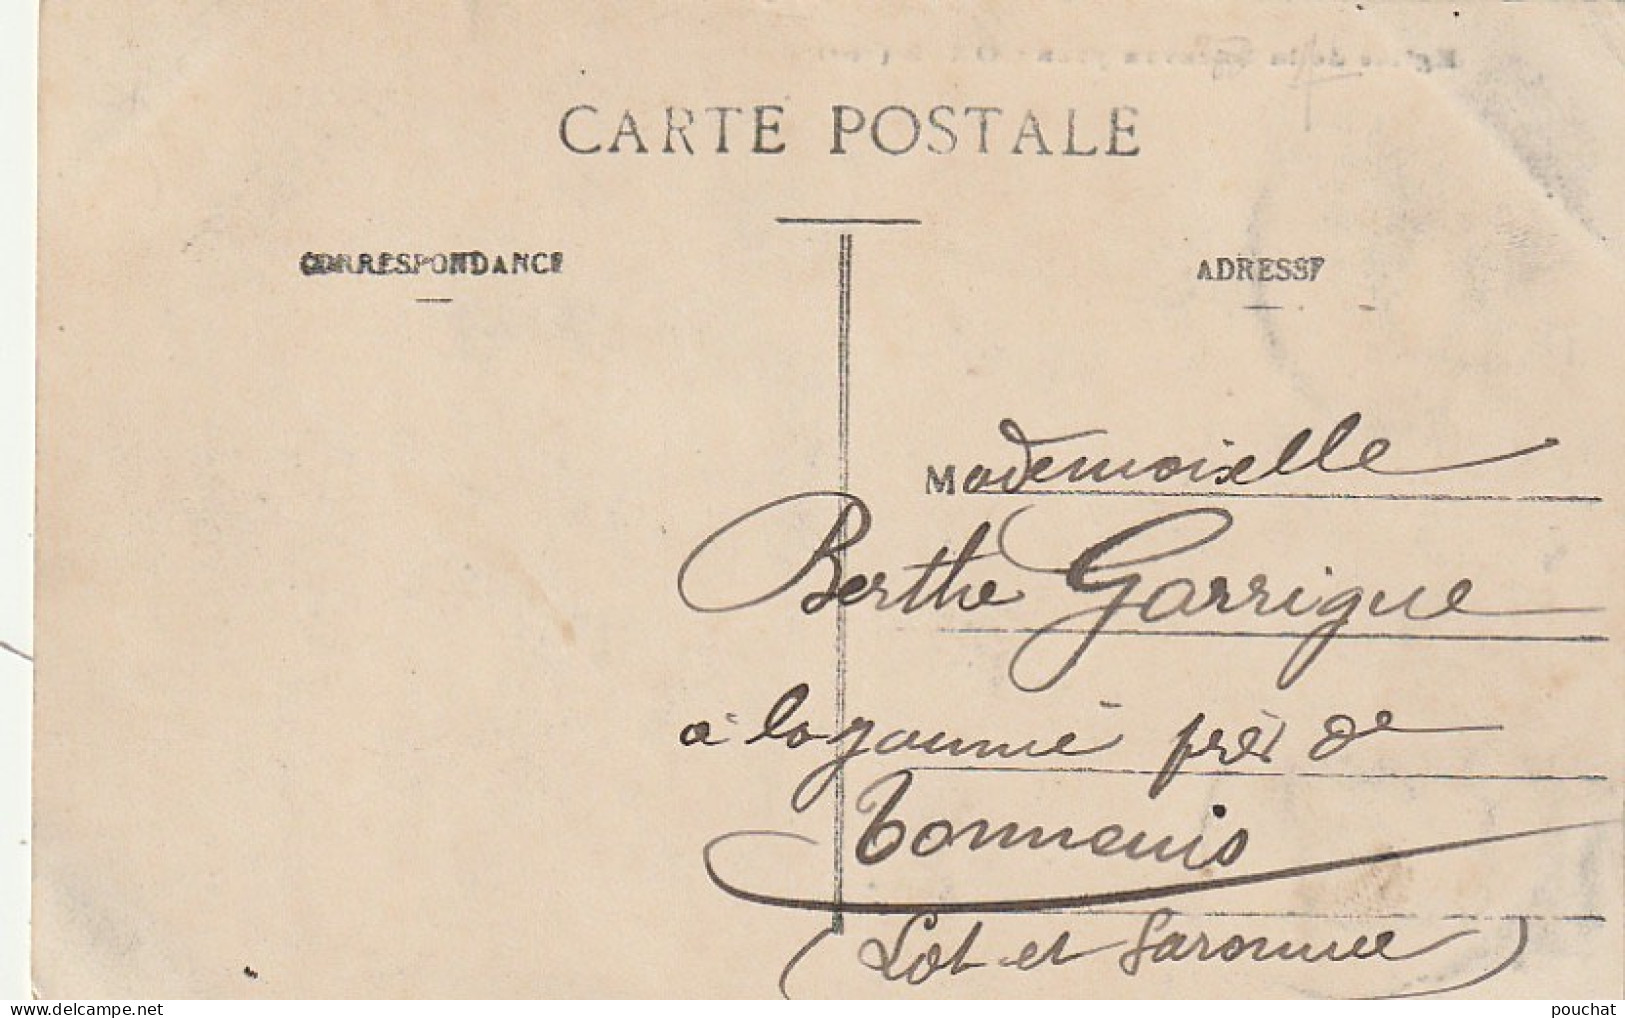 CARTE POSTALE
CORRESPONDANCE
ADRESSE
Mademoiselle
Berthe Garrigue
à près de
Tonneins
(Lot et Garonne)
© delcampe.net
pouchat